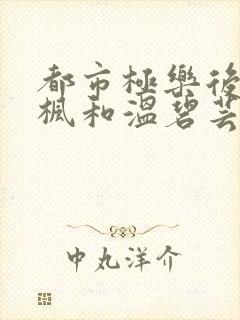 都市極樂後
楓和溫碧芸
中丸洋介